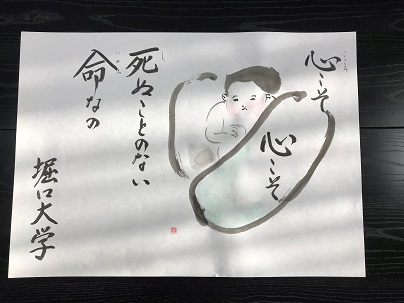 心こそ
心こそ
死ぬことのない
命なの
堀口大学